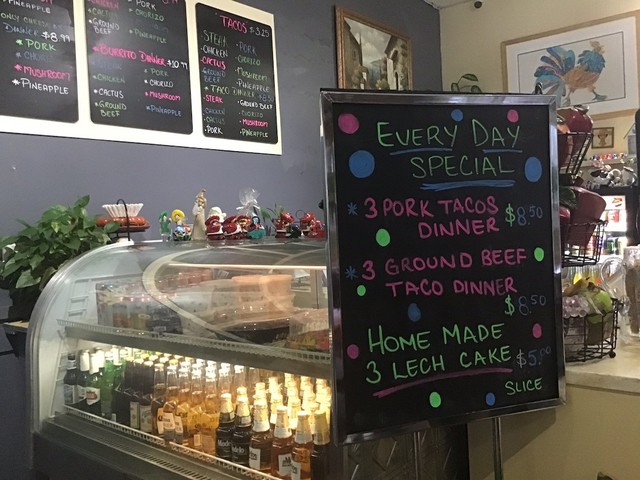 PINEAPPLE
DINNER $8.99
* PORK
* MUSHROOM
* PINEAPPLE
CHICKEN
CHORIZO
* GROUND BEEF
* BURRITO DINNER $10.99
* CHICKEN
* CACTUS
* GROUND BEEF
* PORK
* CHORIZO
* MUSHROOM
* PINEAPPLE
* TACOS $3.25
STEAK
CHICKEN
CACTUS
GROUND BEEF
PORK
CHORIZO
MUSHROOM
PINEAPPLE
* TACO DINNER
STEAK
CHICKEN
CACTUS
PORK
GROUND BEEF
CHORIZO
MUSHROOM
PINEAPPLE
EVERY DAY
SPECIAL
* 3 PORK TACOS
DINNER $8.50
* 3 GROUND BEEF
TACO DINNER
$8.50
HOME MADE
3 LECH CAKE $5.00
SLICE